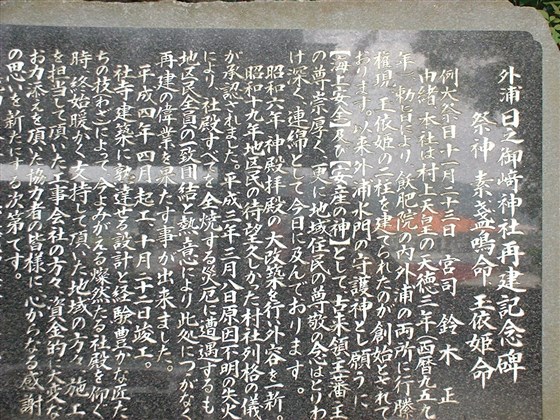 外浦日之御﨑神社再建記念碑
祭神 素盞鳴命 玉依姫命
例大祭日十一月二十三日 宮司 鈴木 正
由緒 本社は村上天皇の天徳三年(西暦九五九
年)勅旨により飫肥院の内外浦の両所に行縢
権現、玉依姫の二社を建てられたのが創始とされて
おります。以来外浦水門の守護神として願うに
【海上安全】及び【安産の神】として、古来領主藩主
の尊崇厚く、更に地域住民の尊敬の念はとりわ
け深く、連綿として今日に及んでおります。
昭和六年神殿拝殿の大改築を行い外容を一新。
昭和十九年地区民の待望久しかった村社列格の儀
が承認されました。平成三年三月八日原因不明の失火
により、社殿すべてを全焼する災厄に遭遇するも
地区民全員の一致団結と熱意により此処につつがなく
再建の偉業を果たす事が出来ました。
平成四年四月起工、十月二十二日竣工。
社寺建築に熟達せる設計と経験豊かな匠た
ちの技わざによって今よみがえる燦然たる社殿を仰ぐ
時、終始暖かく支持して頂いた地域の方々、施工
を担当して頂いた工事会社の方々、資金的に大変な
お力添えを頂いた協力者の皆様に、心からなる感謝
の思いを新たにする次第です。